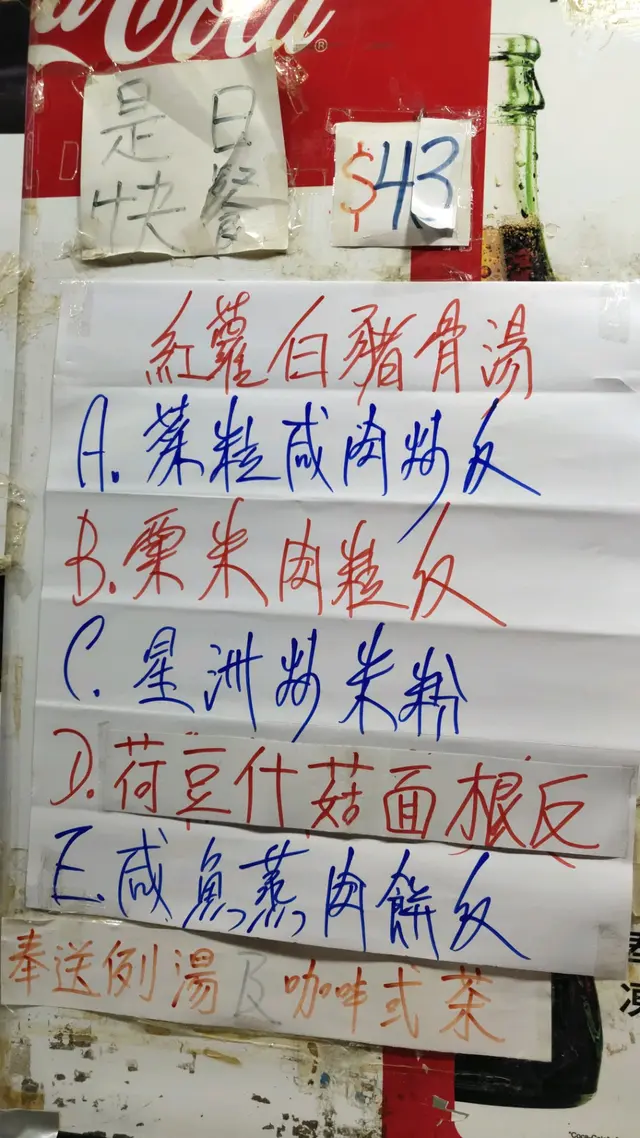 Cola®
是日
快餐
$43
紅蘿白豬骨湯
A. 菜粒咸肉炒反
B. 粟米肉粒反
C. 星洲炒米粉
D. 荷豆什菇面根反
E. 咸魚蒸肉餅反
奉送例湯及咖啡式茶